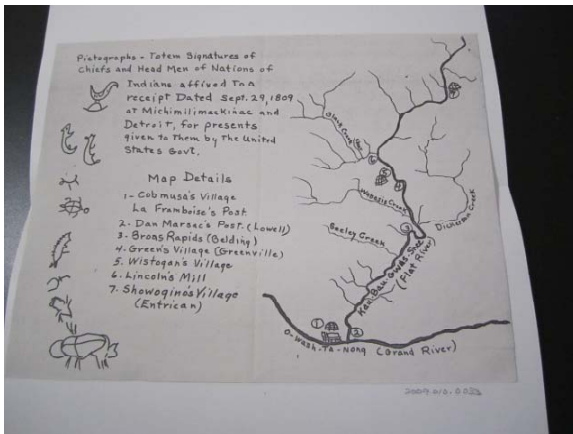 Pictographs - Totem Signatures of
Chiefs and Head Men of Nations of
Indians affixed to a
receipt Dated Sept. 29, 1809
at Michimilimackinac and
Detroit, for presents
given to Them by the United
States Govt.
Map Details
1- Cobmusa's Village
La Framboise's Post.
2. Dan Marsec's Post. (Lowell)
3- Broas Rapids (Belding)
4- Green's Village (Greenville)
5. Wistogan's Village
6. Lincoln's Mill
7. Showogino's Village
(Entrican)
7
Black Creek
6
5
4
Wabasis Creek
Dickerson Creek
3
Seeley Creek
(Flat River)
1
2
O-Wash-Ta-Nong (Grand River)